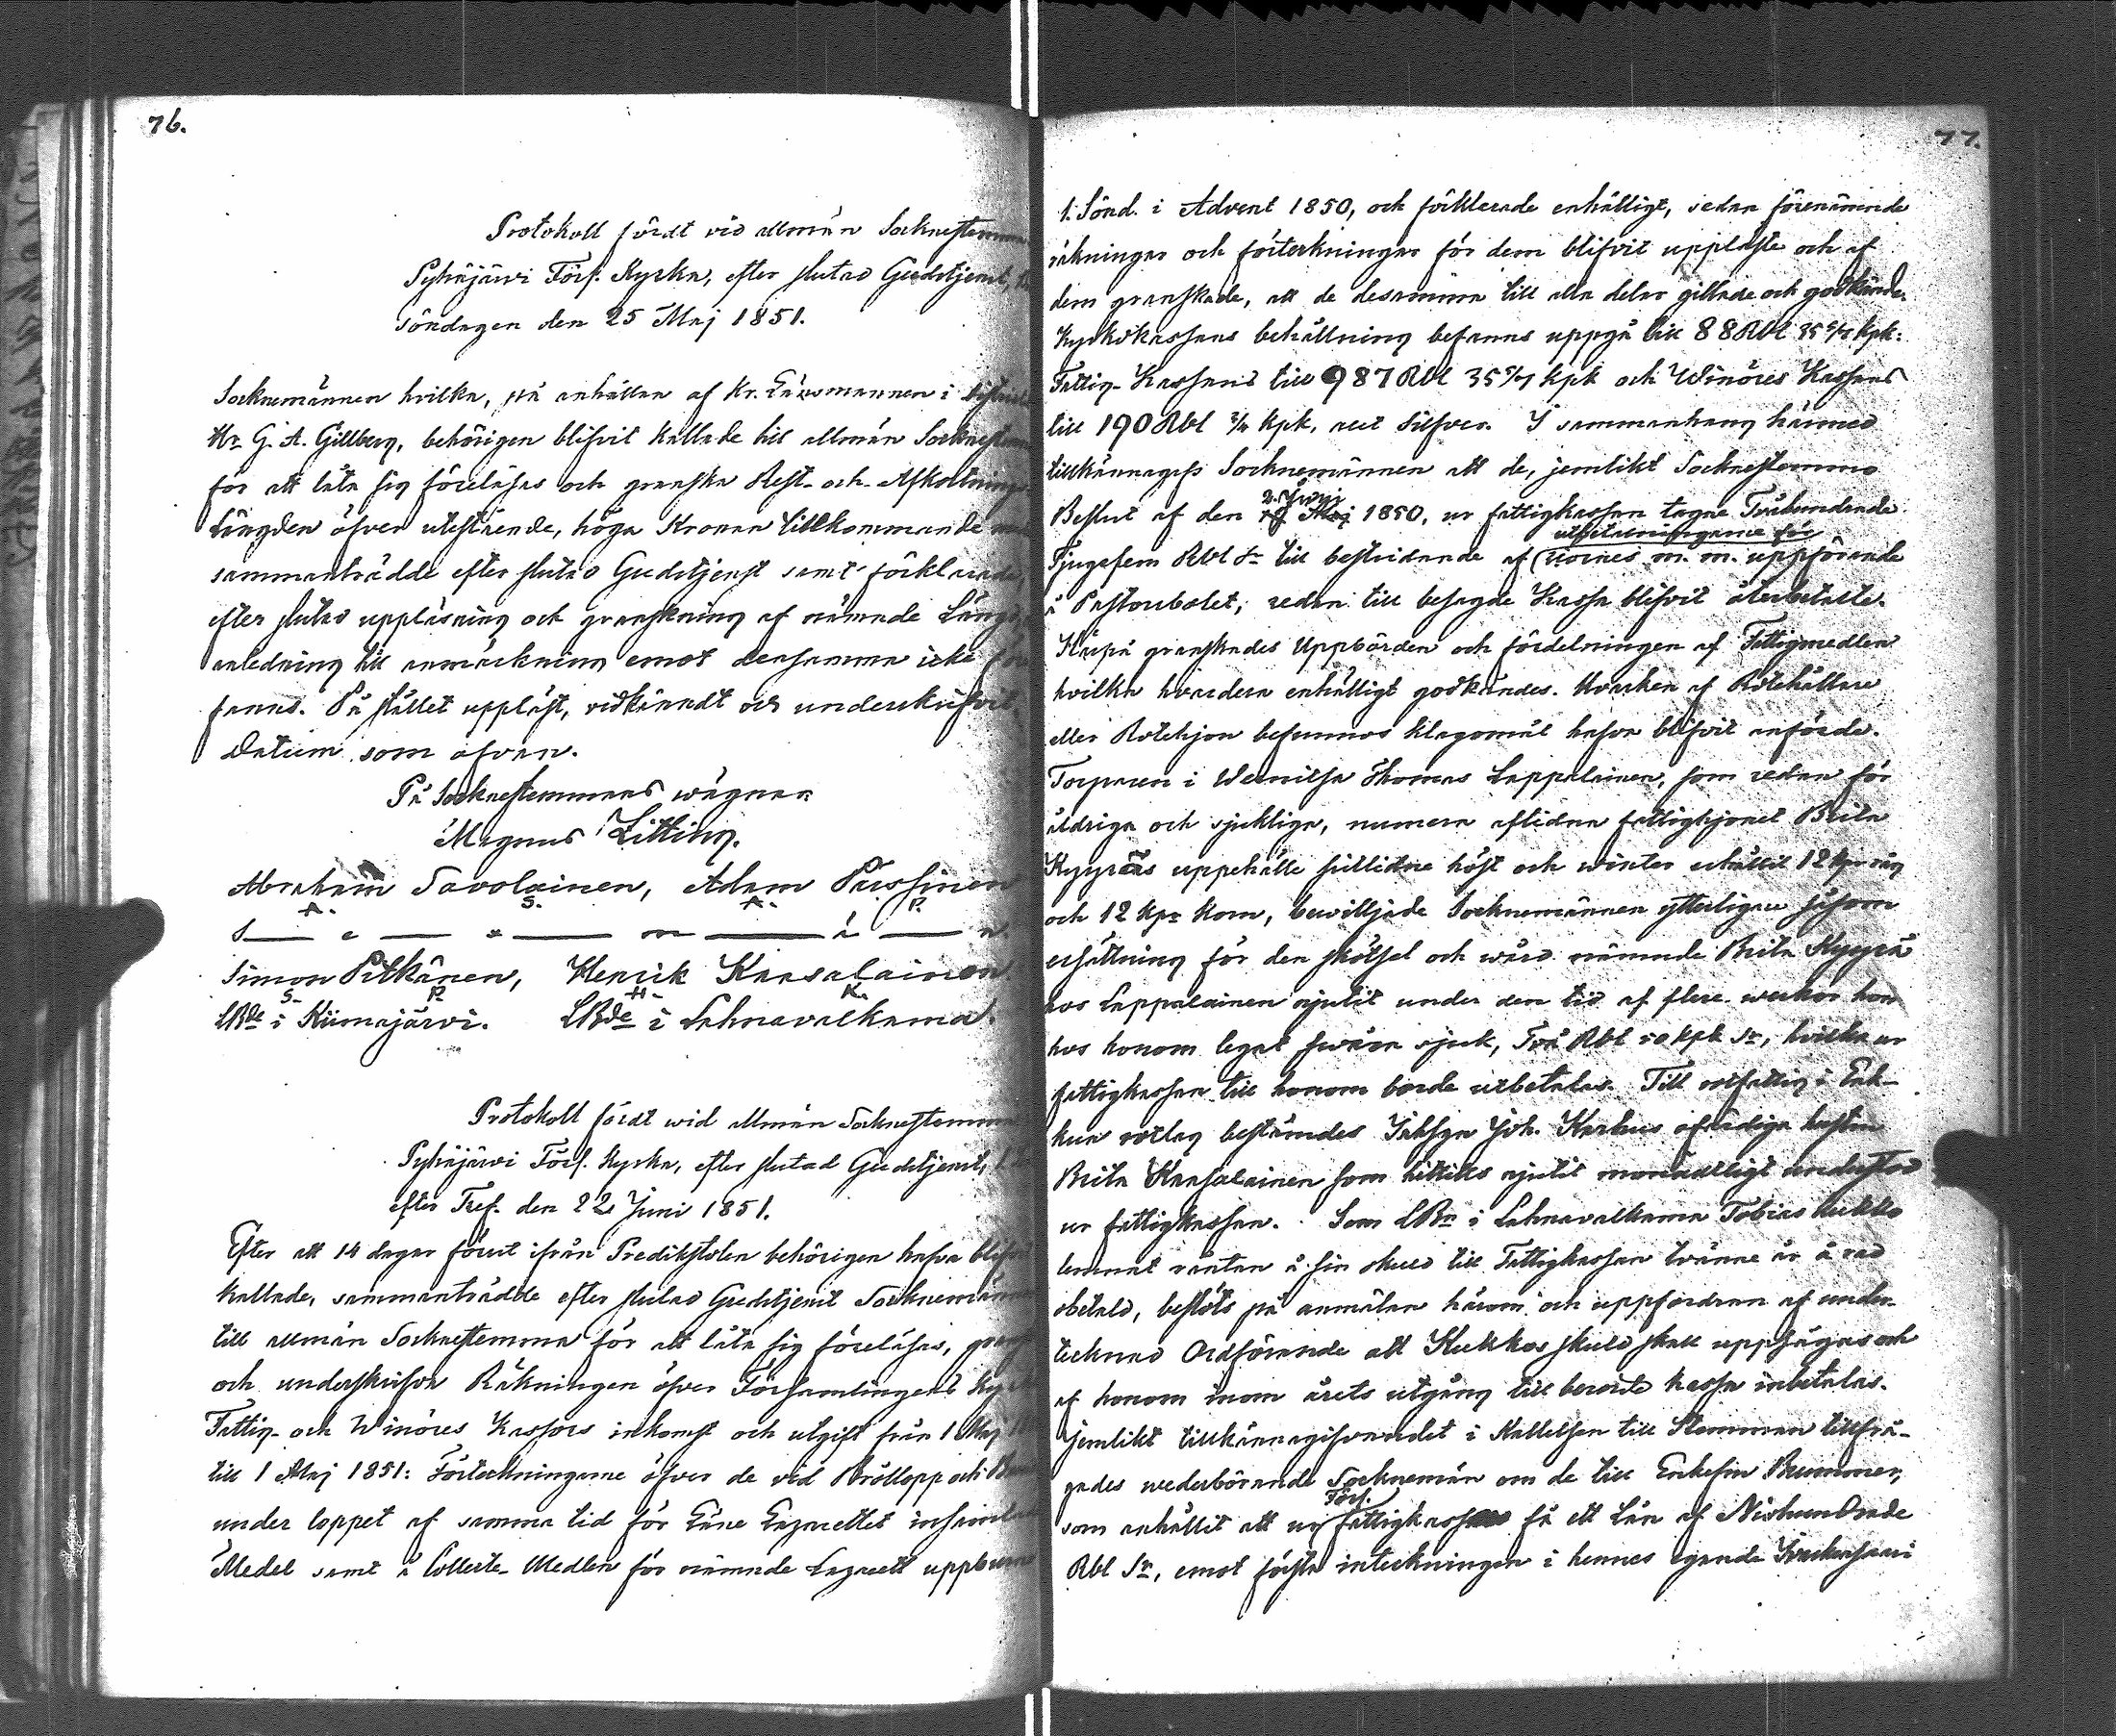 76.
Protokoll fördt vid allmän Socknestemma
Pyhäjärvi Förs. Kyrka, efter slutad Gudstjenst,
söndagen den 25 Maj 1851.
Socknemännen hvilka, på anhållan af Kr. Länsmannen i
Hr G. A. Gillberg, behörigen blifvit kallade till allmän
för att låta sig föreläsas och granska Rest- och Afkortnings
Längden öfver utestående, höga Kronan tillkommande
sammanträdde efter slutad Gudstjenst samt förklarade,
efter slutad uppläsning och granskning af nämnde
anledning till anmärkning emot densamma icke
fanns. På stället uppläst, vidkändt och underskrifvit
Datum som ofvan.
På Socknestemmans wägnar
Magnus Litting.
Abraham Savolainen, Adam Pussinen
A. S. A. P.
S e x m ä n
Simon Pitkänen, Henrik Kaasalainen
S. P. H. K.
LBde i Kiimajärvi. LBde i Lahnavalkama.
Protokoll fördt wid allmän Socknestemma
Pyhäjärvi Förs. kyrka, efter slutad Gudstjenst,
efter Tref. den 22 Juni 1851.
Efter att 14 dagar förut ifrån Predikstolen behörigen hafva
kallade, sammanträdde efter slutad Gudstjenst Socknemännen
till allmän Socknestemma för att låta sig föreläsas,
och underskrifva Räkningen öfver Församlingens
Fattig- och Winöres Kassors inkomst och utgift från 1 Maj
till 1 Maj 1851: Förteckningarne öfver de vid Bröllopp och
under loppet af samma tid för Läne Lazarettet
Medel samt å Collecte-Medlen för nämnde Lazarett
77.
1. Sönd. i Advent 1850, och förklarade enhälligt, sedan förenämnde
räkningar och förteckningar för dem blifvit uppläste och af
dem granskade, att de desamma till alla delar gillade och godkände.
Kyrkokassans behållning befanns uppgå till 88 Rbl 35 5/7 kpk:
Fattig-Kassans till 987 Rbl 35 5/7 kpk och Winöres Kassans
till 190 Rbl kpk, allt Silfver. I sammanhang härmed
tillkännagafs Socknemännen att de, jemlikt Socknestemmo
2. Juni
Beslut af den Maj 1850, ur fattigkassan tagne Tvåhundrade
utbetalningarne för
Tjugufem Rbl Sr till bestridande af m. m. uppförande
å Pastorsbolet, redan till besagde Kassa blifvit återbetalte.
Härpå granskades Uppbörden och fördelningen af Fattigmedlen
hvilka hvardera enhälligt godkändes. Hvarken af Rotehållare
eller Rotehjon befunnos klagomål hafva blifvit anförde.
Torparen i Wernitsa Thomas Lappalainen, som redan för
åldriga och sjukliga, numera aflidna fattighjonet Brita
Kyyräs uppehälle sistlidne höst och winter erhållit 12 kpr råg
och 12 kpr korn, bewiljade Socknemännen ytterligare såsom
ersättning för den skötsel och wård nämnde Brita Kyyrä
hos Lappalainen njutit under den tid af flere weckor hon
hos honom legat swåra sjuk, Två Rbl 50 kpk Sr, hvilka ur
fattigkassan till honom borde utbetalas. Till rotfattig i Enk-
kua rotlag bestämdes Inhysn Joh. Karhus ofärdiga hustru
Brita Kaasalainen som hittills njutit månadtligt understöd
ur fattigkassan. Som LBn i Lahnavalkama Tobias Kukko
lemnat räntan å sin skuld till Fattigkassan tvänne år å rad
obetald, beslöts på anmälan härom och uppfordran af under-
tecknad Ordförande att Kukkos skuld skall uppsägas och
af honom inom årets utgång till berörde kassa inbetalas.
Jemlikt tillkännagifvandet i Kallelsen till Stemman tillfrå-
gades wederbörande Socknemän om de till Enkefru Brummer,
Förs.
som anhållit att ur fattigkassan få ett Lån af Niohundrade
Rbl Sr, emot första inteckningen i hennes egande